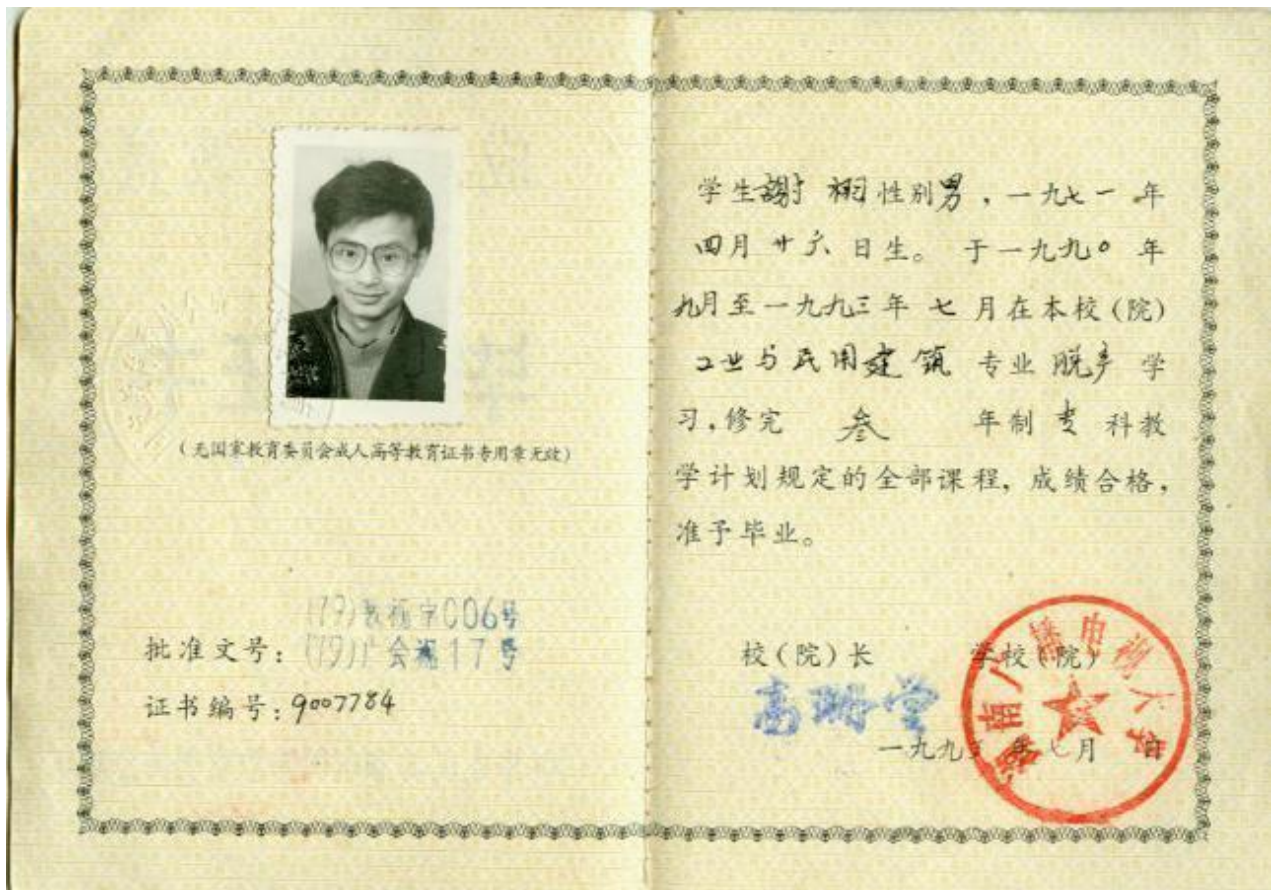 (无国家教育委员会成人高等教育证书专用章无效)
(79)教福字006号
批准文号: (79)广会湘17号
证书编号: 9007784
学生謝 栩 性别男,一九七一年
四月廿六日生。于一九九〇年
九月至一九九三年七月在本校(院)
工业与民用建筑 专业 脱产 学
习,修完 叁 年制 专 科教
学计划规定的全部课程,成绩合格,
准予毕业。
校(院)长 学校(院)
高
一九九三年七月 日
湖南广播电视大学